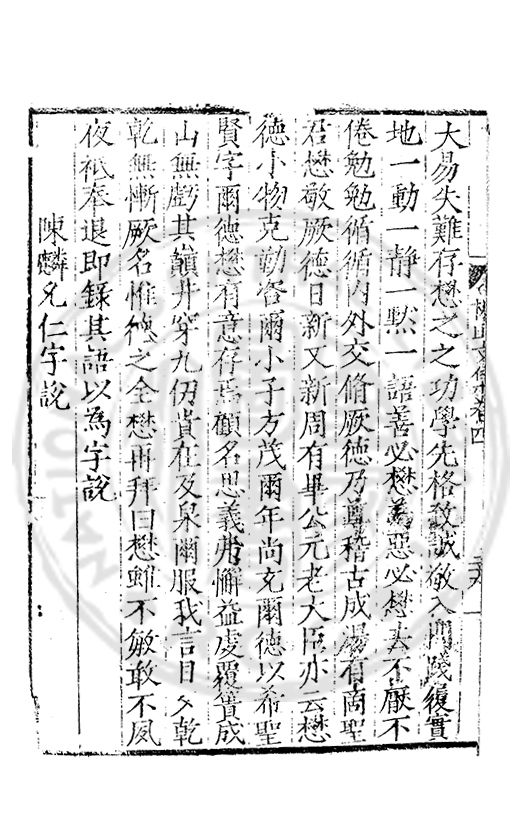 大易失難存懋之之功學先格致誠敬入門踐履實
地一動一静一黙一語善必懋為惡必懋去不厭不
倦勉勉循循内外交脩厥德乃懋稽古成湯有商聖
君懋敬厥德日新又新周有畢公元老大臣亦云懋
德小物克勤咨爾小子方茂爾年尚充爾德以希聖
賢字爾德懋有意存焉顧名思義弗懈益虔覆簣成
山無虧其巔井穿九仞貴在及泉爾服我言日夕乾
乾無慚厥名惟德之全懋再拜曰懋雖不敏敢不夙
夜祗奉退即錄其語以為字說
陳麟兄仁字說
山文集卷四